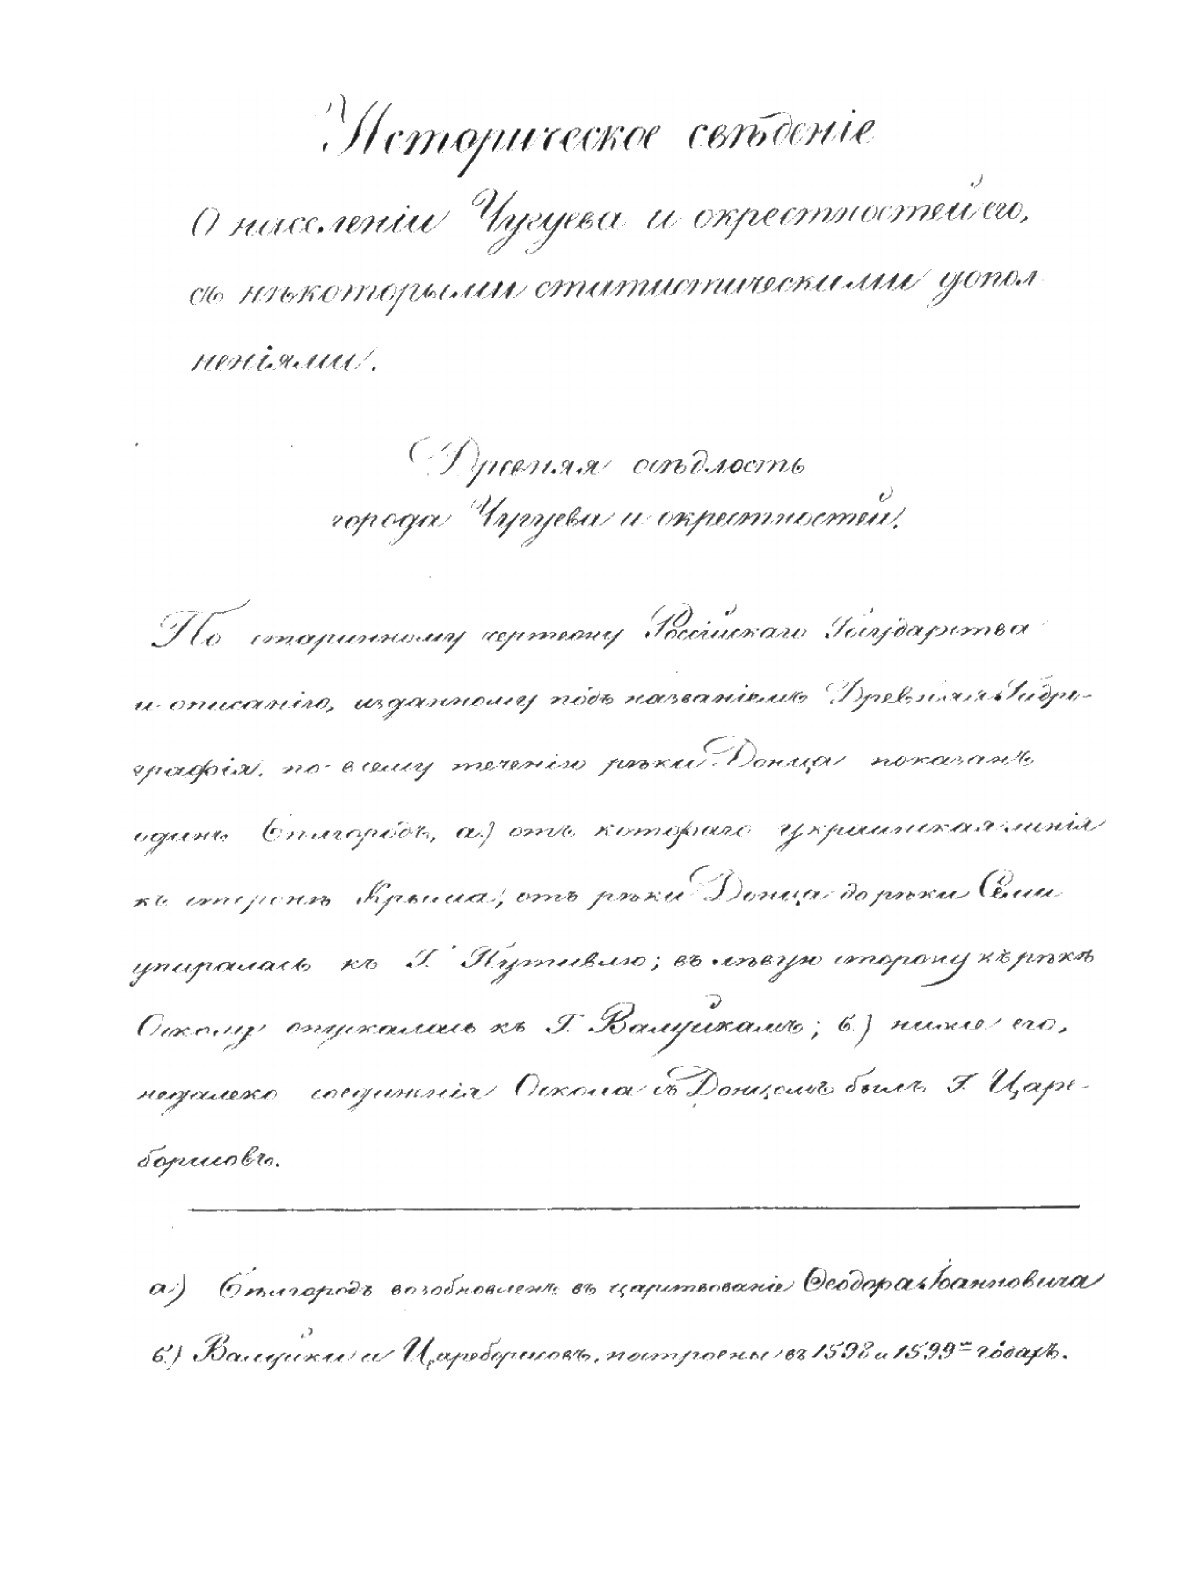 Историческое свѣденіе
О населеніи Чугуева и окрестностей его,
съ нѣкоторыми статистическими допол
неніями.
Древняя осѣдлость
города Чугуева и окрестностей.
По старинному чертежу Россійскаго Государства
и описанію, изданному подъ названіемъ Древняя Гидро-
графія, по всему теченію рѣки Донца показанъ
одинъ Бѣлгородъ, а.) отъ котораго украинская линія
къ сторонѣ Крыма, отъ рѣки Донца до рѣки Семи
упиралась къ Г. Путивлю; въ лѣвую сторону къ рѣкѣ
Осколу опускалась къ Г. Валуйкамъ; б.) ниже его,
недалеко соединенія Оскола съ Донцомъ былъ Г. Царе-
борисовъ.
а.) Бѣлгородъ возобновленъ въ царствованіе Ѳеодора Іоанновича
б.) Валуйки и Цареборисовъ, построены въ 1598 и 1599-хъ годахъ.